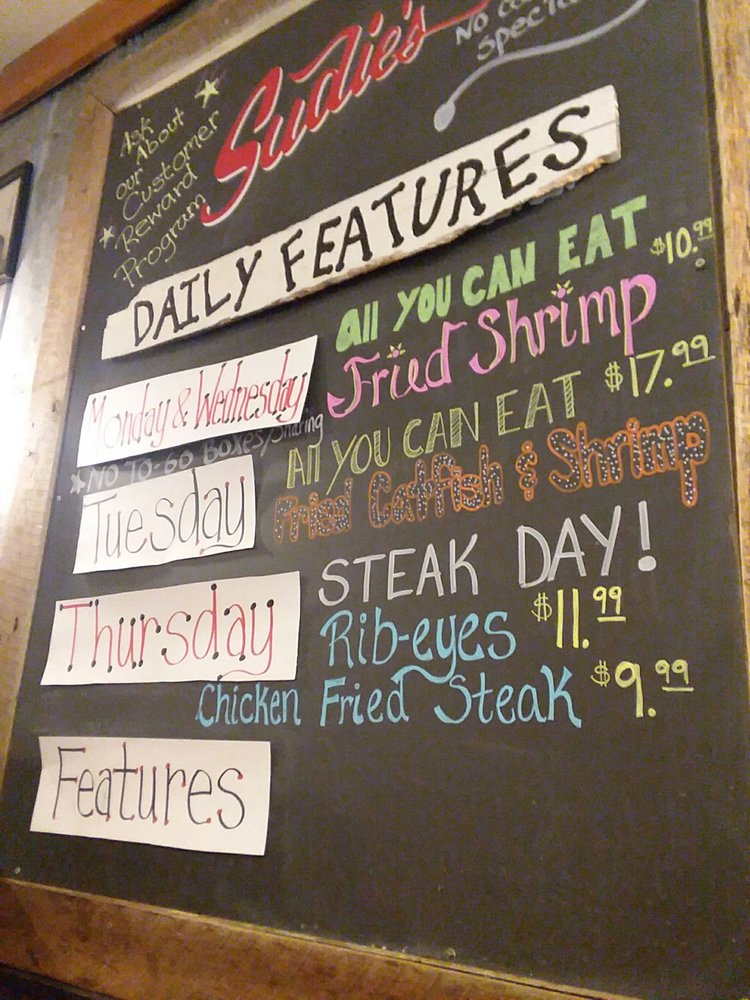 Sudie's
No
Ask
About
our
Customer
Reward
Program
DAILY FEATURES
Monday & Wednesday
All YOU CAN EAT $10.99
Fried Shrimp
NO TO-GO BOXES/Sharing
Tuesday
All YOU CAN EAT $17.99
Fried Catfish & Shrimp
Thursday
STEAK DAY!
Rib-eyes $11.99
Chicken Fried Steak $9.99
Features